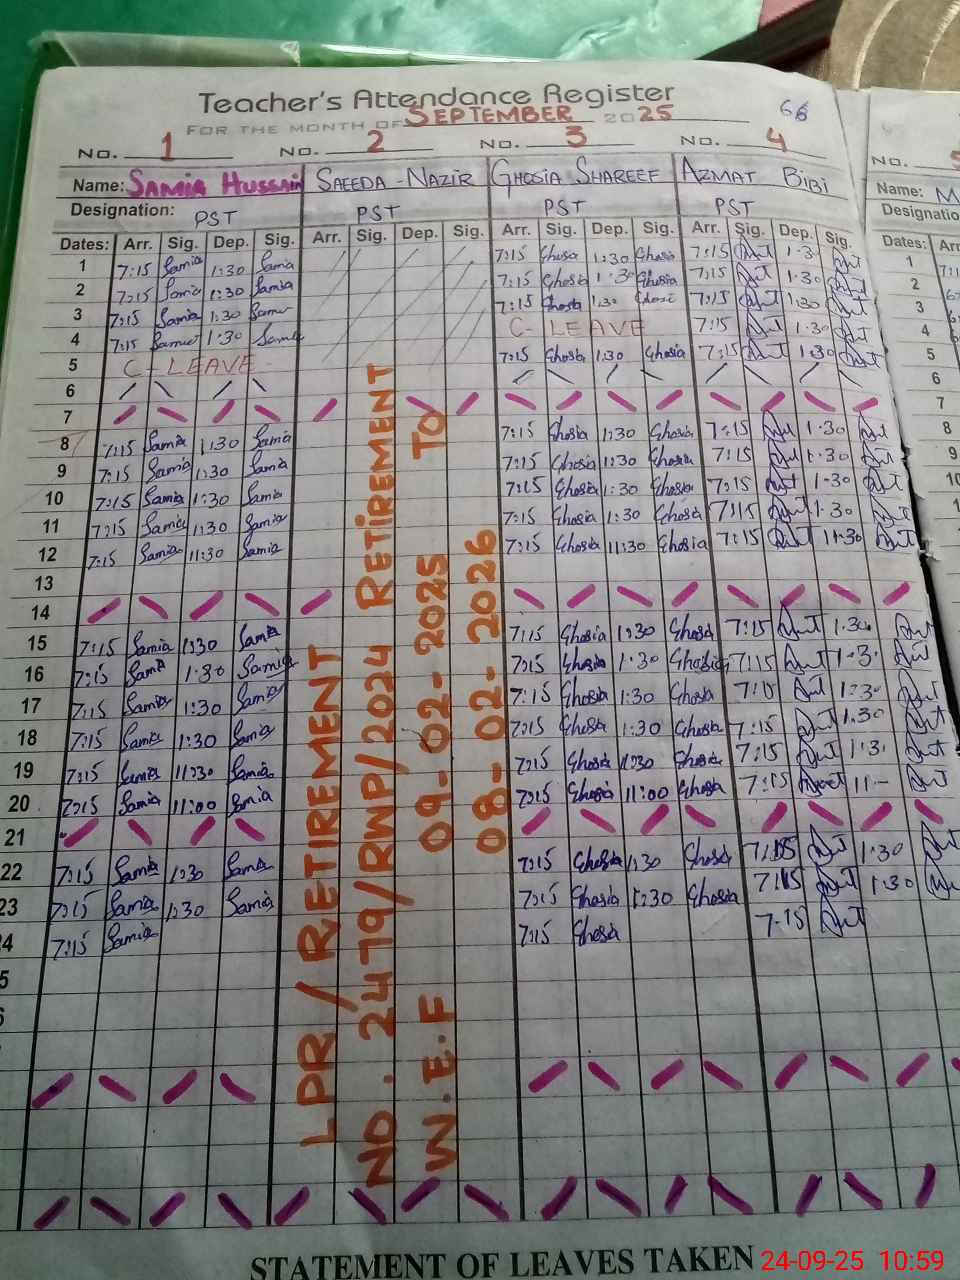 Teacher's Attendance Register
FOR THE MONTH OF SEPTEMBER 2025 66
NO. 1 NO. 2 NO. 3 NO. 4 NO. 5
Name: SAMIA HUSSAIN SAEEDA - NAZIR GHOSIA SHAREEF AZMAT BIBI Name: M
Designation: PST PST PST PST Designatio
Dates: Arr. Sig. Dep. Sig. Arr. Sig. Dep. Sig. Arr. Sig. Dep. Sig. Arr. Sig. Dep. Sig. Dates: Arr
1 7:15 Samia 1:30 Samia 7:15 Ghosia 1:30 Ghosia 7:15 1:30 1
2 7:15 Samia 1:30 Samia 7:15 Ghosia 1:30 Ghosia 7:15 1:30 2
3 7:15 Samia 1:30 Samia 7:15 Ghosia 1:30 Ghosia 7:15 1:30 3
4 7:15 Samia 1:30 Samia C- LEAVE 7:15 1:30 4
5 C- LEAVE 7:15 Ghosia 1:30 Ghosia 7:15 1:30 5
6 6
7 7
8 7:15 Samia 1:30 Samia 7:15 Ghosia 1:30 Ghosia 7:15 1:30 8
9 7:15 Samia 1:30 Samia 7:15 Ghosia 1:30 Ghosia 7:15 1:30 9
10 7:15 Samia 1:30 Samia 7:15 Ghosia 1:30 Ghosia 7:15 1:30 10
11 7:15 Samia 1:30 Samia 7:15 Ghosia 1:30 Ghosia 7:15 1:30
12 7:15 Samia 11:30 Samia 7:15 Ghosia 11:30 Ghosia 7:15 11:30
13
14
15 7:15 Samia 1:30 Samia 7:15 Ghosia 1:30 Ghosia 7:15 1:30
16 7:15 Samia 1:30 Samia 7:15 Ghosia 1:30 Ghosia 7:15 1:30
17 7:15 Samia 1:30 Samia 7:15 Ghosia 1:30 Ghosia 7:15 1:30
18 7:15 Samia 1:30 Samia 7:15 Ghosia 1:30 Ghosia 7:15 1:30
19 7:15 Samia 11:30 Samia 7:15 Ghosia 11:30 Ghosia 7:15 1:3
20 7:15 Samia 11:00 Samia 7:15 Ghosia 11:00 Ghosia 7:15 11-
21
22 7:15 Samia 1:30 Samia 7:15 Ghosia 1:30 Ghosia 7:15 1:30
23 7:15 Samia 1:30 Samia 7:15 Ghosia 1:30 Ghosia 7:15 1:30
4 7:15 Samia 7:15 Ghosia 7:15
5
6
LPR / RETIREMENT
NO. 2479/RWP/2024 RETIREMENT
W.E.F 09-02-2025 TO
08-02-2026
STATEMENT OF LEAVES TAKEN
24-09-25 10:59